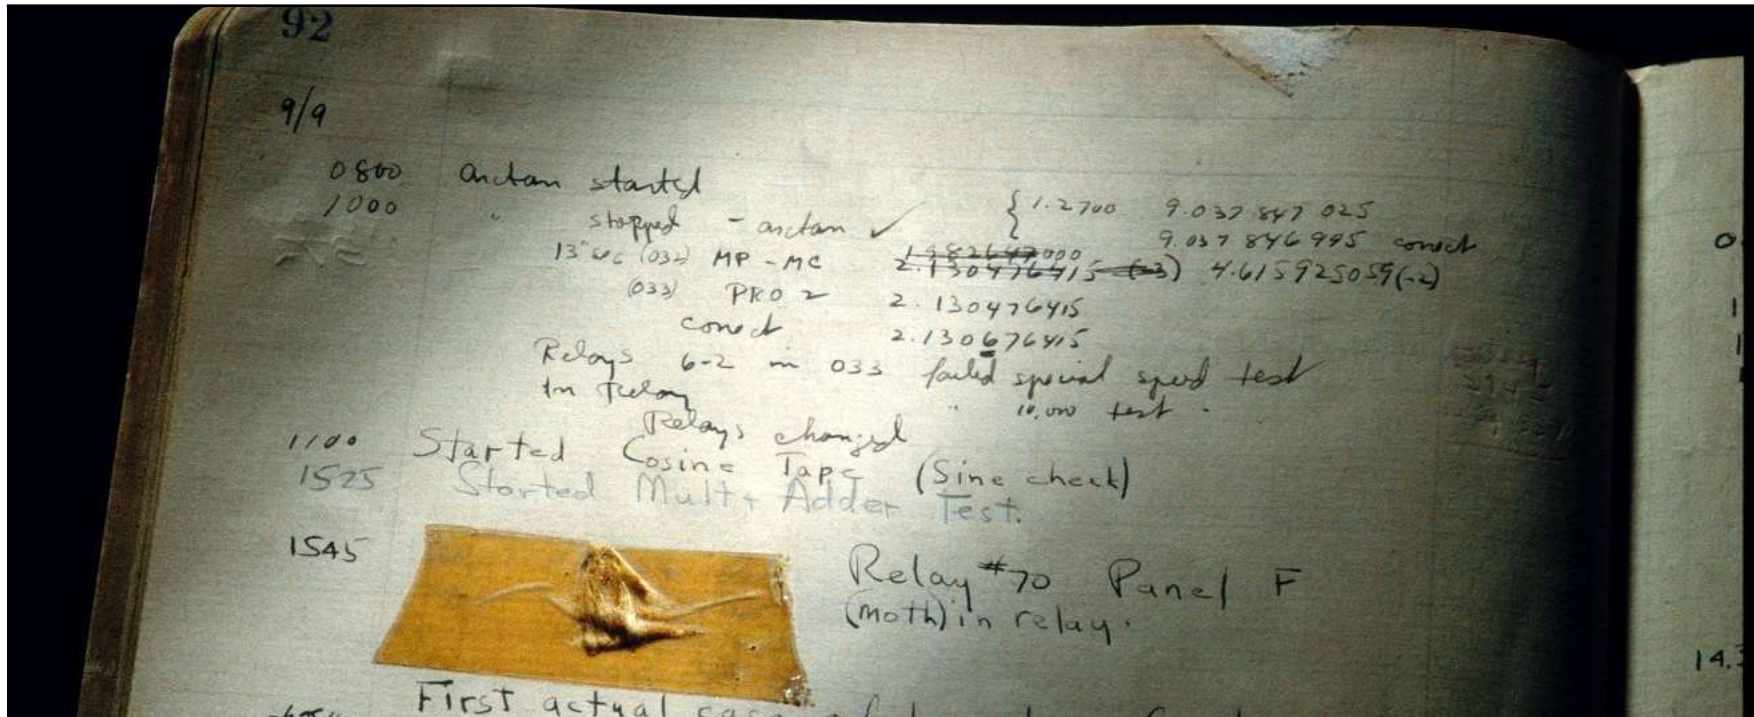 92
9/9
0800 arctan started
1000 " stopped - arctan ✓ { 1.2700 9.037 847 025
9.037 846 995 conect
13" uc (032) MP - MC 1.982647000
2.130476415 (-3) 4.615925059(-2)
(033) PRO 2 2.130476415
conect 2.130676415
Relays 6-2 in 033 failed special speed test
In Relay " 10,000 test .
Relays changed
1100 Started Cosine Tape (Sine check)
1525 Started Mult + Adder Test.
1545 Relay #70 Panel F
(moth) in relay.
First actual case of
14.